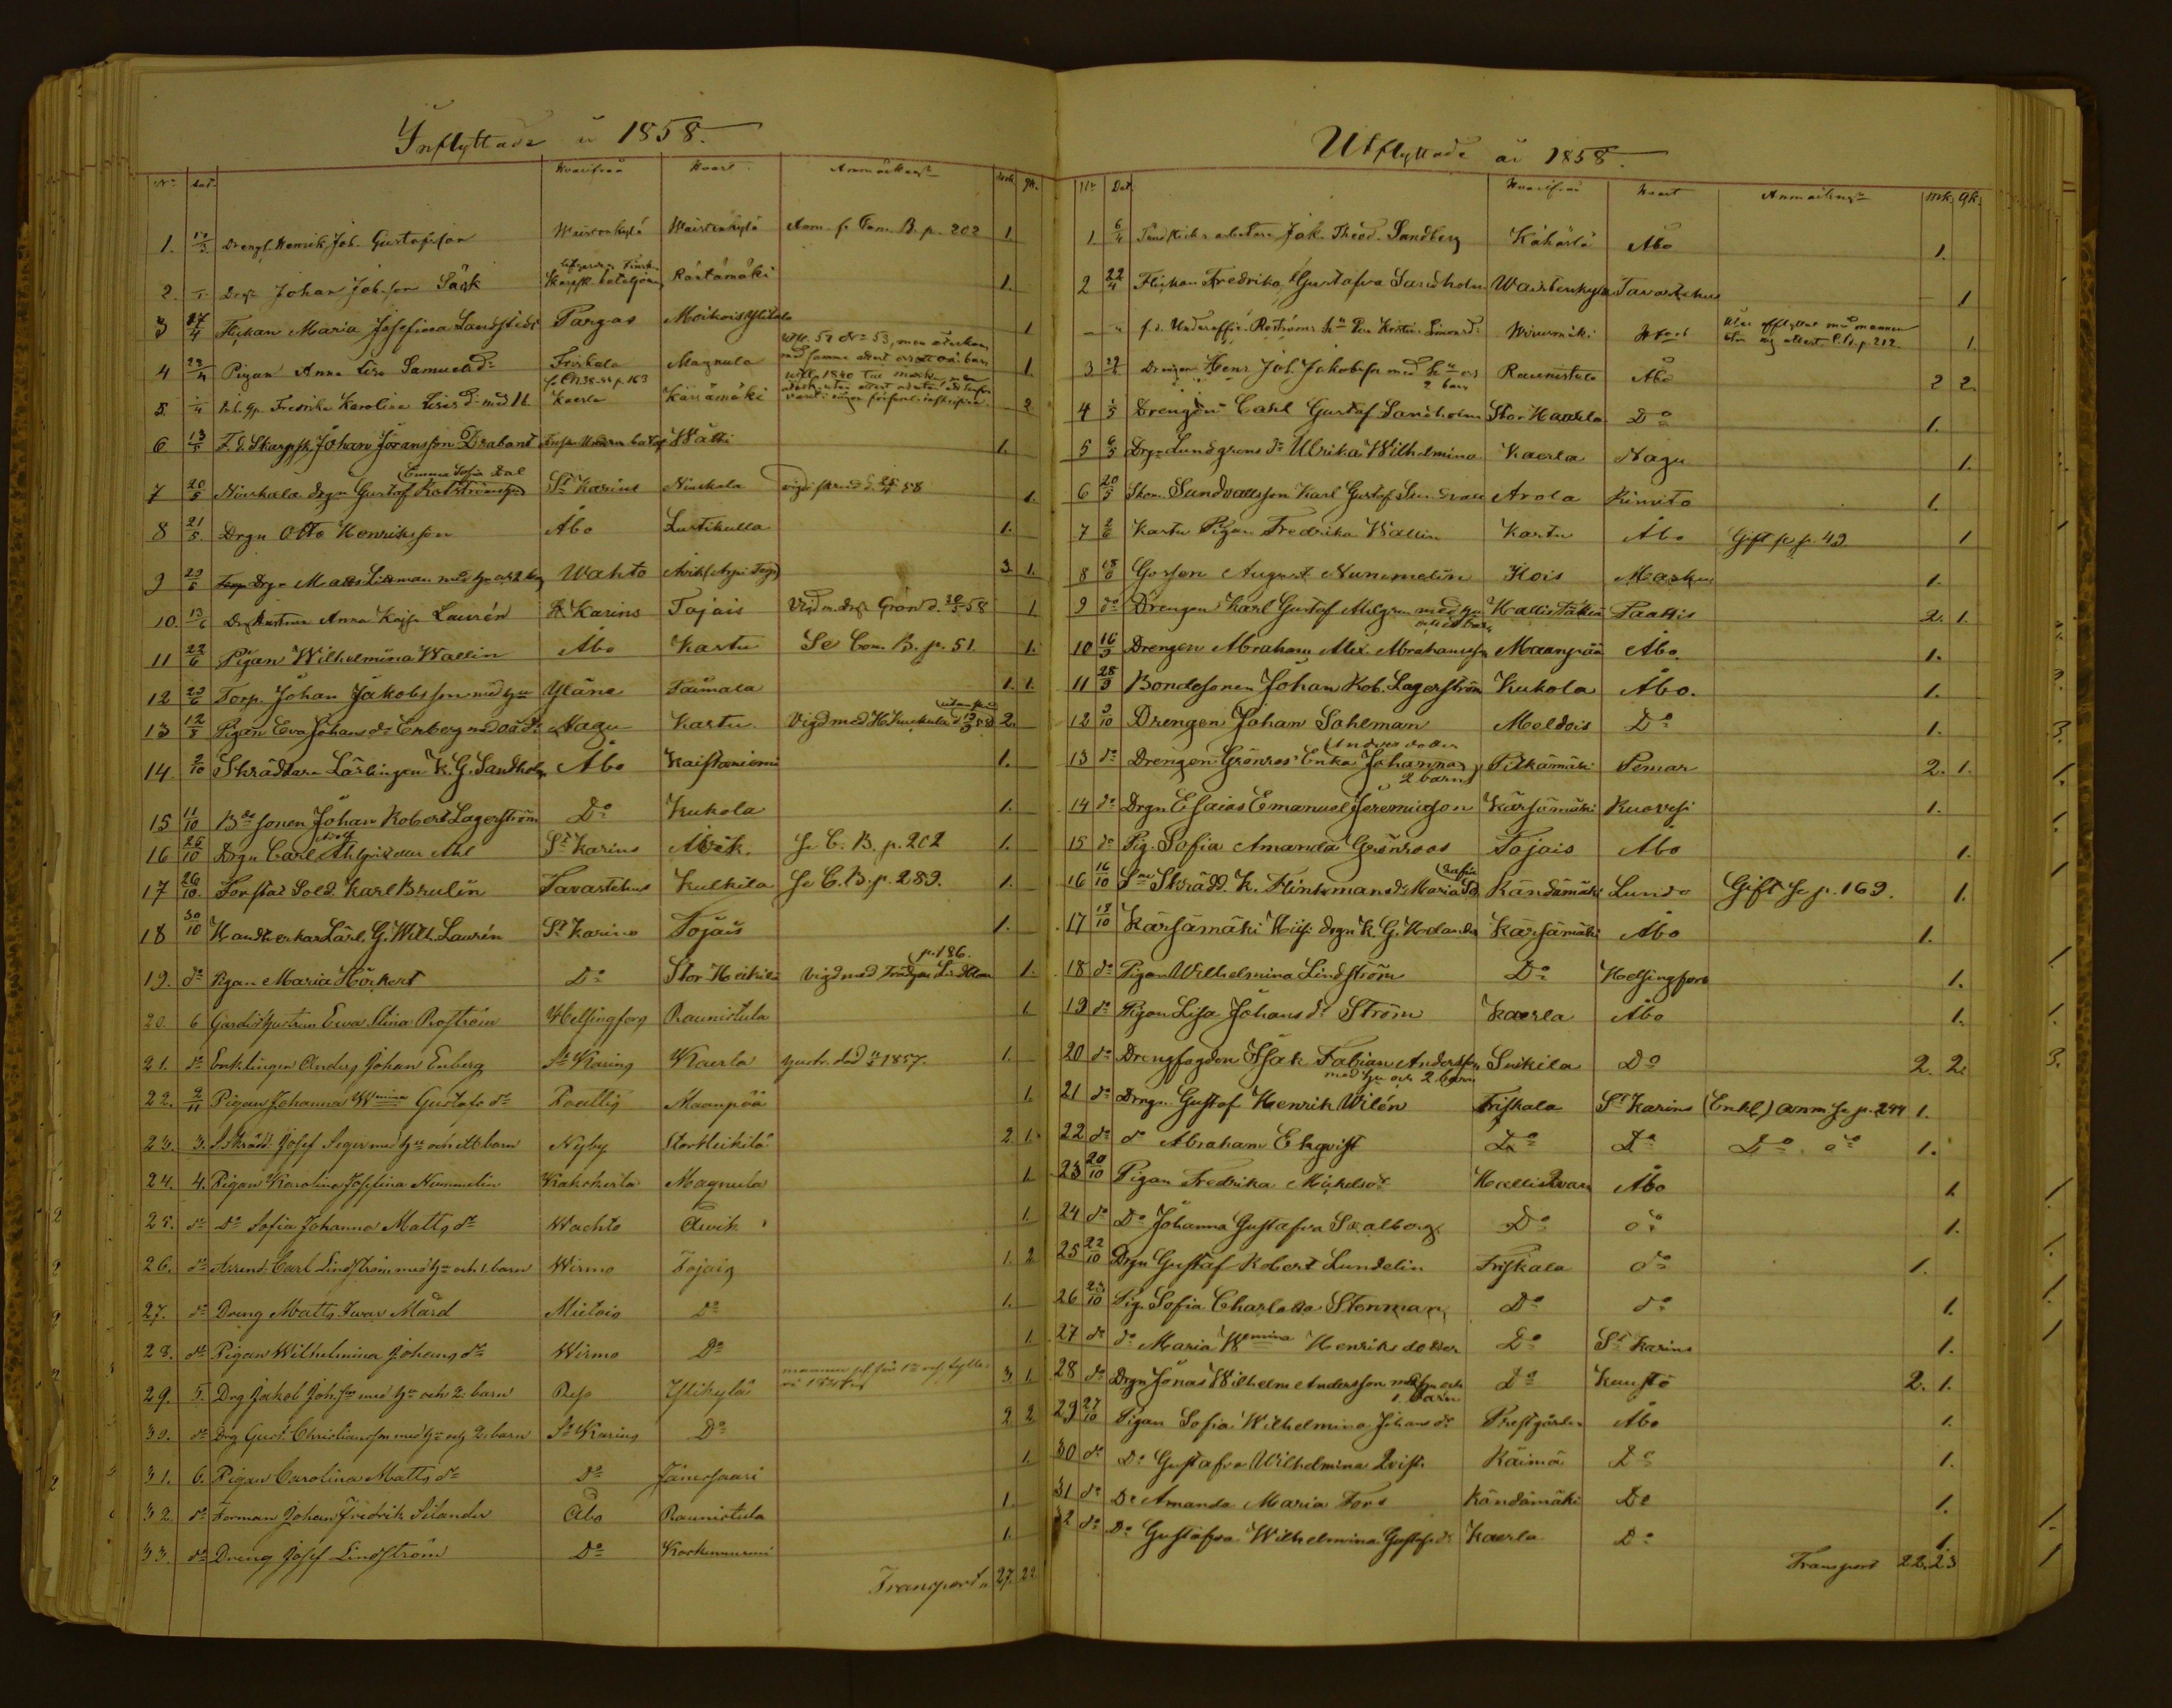 Inflyttade år 1858.
No Dat. Hvarifrån Hvart Anmärkningar mk. qk.
1. 3 Drengs. Henrik Joh. Gustafsson Waistenkylä Waistenkylä Anm. se Com. B. p. 202 1.
2. Johan Johsson Sack Räntämäki 1.
3 27/4 Flickan Maria Josefina Pargas Moikois 1
4 4 Pigan Anna Lisa Samuelsd:r Friskala Magnula 1
5. 4 Fredrika Karolina Kaerla Kärsämäki 2
6 13/5 F. d. Skarpsk. Johan Göransson Drabant Wätti 1.
Emma Sofia Dal
7 20/5 Niuskala drgn Gustaf S:t Karins Niuskala 58 1.
8 21/5 Drgn Otto Henriksson Åbo Lustikulla 1.
9 Drgn Matts Littman med hu och 2 barn Wahto 3 1.
10. 13/6 Anna Kajsa Laurén S:t Karins Tojais Vigd m. drg Grön d. 58 1
11 22/6 Pigan Wilhelmina Wallin Åbo Kartu Se Com. B. p. 51 1.
12 Torp. Johan Jakobsson med hu Yläne Taimala 1. 1.
13 12/8 Pigan Eva Johansd:r Enberg Nagu Kartu Vigd med 2.
14. 2/10 Skräddare Lärlingen K. G. Sandholm Åbo Kaistaniemi 1.
15 11/10 B:desonen Johan Robert Lagerström D:o Kukola 1.
16 26/10 Drgn Carl Adolf Ahlqvist eller Ahl S:t Karins Avik Se C. B. p. 202 1.
17 26/10 Forstad Sold. Karl Brulin Tavastehus Kulkila Se C. B. p. 289. 1.
18 30/10 Handtverkar Lärl. G. Wilh. Laurén S:t Karins Tojais 1.
19. d:o Pigan Maria Hörkert D:o Stor Heikilä Vigd med Lindblom p. 186. 1.
20. 6 Gardist hustrun Ewa Stina Roström Helsingfors Raunistula 1
21. d:o Enklingen Anders Johan Enberg S:t Karins Kaerla hustr. död 1857. 1.
22. 2/11 Pigan Johanna W:mina Gustafsd:r Paattis Maanpää 1.
23. 3. Skrädd. Josef Seger med hu och ett barn Nyby Stor Heikilä 2 1.
24. 4. Pigan Karolina Josefina Nummelin Kakoherla Magnula 1.
25. d:o D:o Sofia Johanna Mattsd:r Wachto Awik 1.
26. d:o Arrend. Carl Lindström med hu och 1. barn Wirmo Tojais 1. 2
27. d:o Dreng Matts Iwar Mård Mietois D:o 1.
28. d:o Pigan Wilhelmina Johansd:r Wirmo D:o 1.
29. 5. Drg Jakob Johsson med hu och 2. barn Reso Ylikylä 3 1.
30. d:o Drg Gust. Christiansson med hu och 2. barn S:t Karins D:o 2 2
31. 6. Pigan Carolina Mattsd:r D:o Jänessaari 1.
32. d:o Forman Johan Fredrik Silander Åbo Raunistula 1.
33. d:o Dreng Josef Lindström D:o 1.
Transport 27. 22
Utflyttade år 1858.
No Dat. Hvarifrån Hvart Anmärkningar mk. qk.
1. 6/4 arbetare Jak. Theod. Sandberg Kähärlä Åbo 1.
2 22/4 Flickan Fredrika Gustafva Sandholm Waistenkylä Tavastehus 1
f. d. Underoffic. Roströms h:u Eva Kristin. Simonsd:r 1.
3 22/4 Drengen Henr. Joh. Jakobsson med h:u och 2 barn Raunistula Åbo 2 2.
4 1/5 Drengen Carl Gustaf Sandholm Stor Heikkilä D:o 1.
5 6/5 Drgn Lundgrens d:r Ulrika Wilhelmina Kaerla Nagu 1.
6 20/5 Skom. Sundvallsson Karl Gustaf Arola Kimito 1.
7 2/6 Kartu Pigan Fredrika Wallin Kartu Åbo Gift se p. 49 1
8 18/6 Gossen August Nummelin Kois Masku 1.
9 d:o Drengen Karl Gustaf med hu och ett barn Paattis 2. 1.
10 16/9 Drengen Abraham Alex. Abrahamsson Maanpää Åbo. 1.
11 28/9 Bondesonen Johan Rob. Lagerström Kukola Åbo. 1.
12 2/10 Drengen Johan Sahlman Moldois D:o 1.
13 d:o Drengen Grönros' Enka Johanna Andersdotter 2 barn Pitkämäki Pemar 2. 1.
14 d:o Drgn Esaias Emanuel Jeremiasson Kärsämäki Kuorvesi 1.
15 d:o Pig. Sofia Amanda Grönroos Tojais Åbo 1.
16 16/10 S:ne Skrädd. K. Flinkmans d:r Maria Sofia Räntämäki Lundo Gift se p. 169. 1.
17 18/10 Kärsämäki Hisi drgn K. G. Helander Kärsämäki Åbo 1.
18 d:o Pigan Wilhelmina Lindström D:o Helsingfors 1.
19 d:o Pigan Lisa Johansd:r Ström Kaerla Åbo 1.
20 d:o Drengfogden Isak Fabian Andersson med hu och 2 barn Suikila D:o 2. 2.
21 d:o Drngn Gustaf Henrik Wilén Friskala S:t Karins (Enkl) anm se p. 244 1.
22 d:o d:o Abraham Ekqvist D:o D:o D:o d:o 1.
23 20/10 Pigan Fredrika Mickelsd:r Hallisqvarn Åbo 1.
24 d:o D:o Johanna Gustafva Sealborg D:o d:o 1.
25 22/10 Drgn Gustaf Robert Lundelin Friskala d:o 1.
26 23/10 Pig. Sofia Charlotta Stenman D:o d:o 1.
27 d:o d:o Maria W:mina Henriks dotter D:o S:t Karins 1.
28 d:o Drgn Jonas Wilhelm Andersson med hu och 1. barn D:o Kustö 2. 1.
29 27/10 Pigan Sofia Wilhelmina Johansd:r Prestgården Åbo 1.
30 d:o D:o Gustafva Wilhelmina Qvist Räimä D:o 1.
31 d:o D:o Amanda Maria Fors Räntämäki D:o 1.
32 d:o D:o Gustafva Wilhelmina Gustafsd:r Kaerla D:o 1.
Transport 22. 23